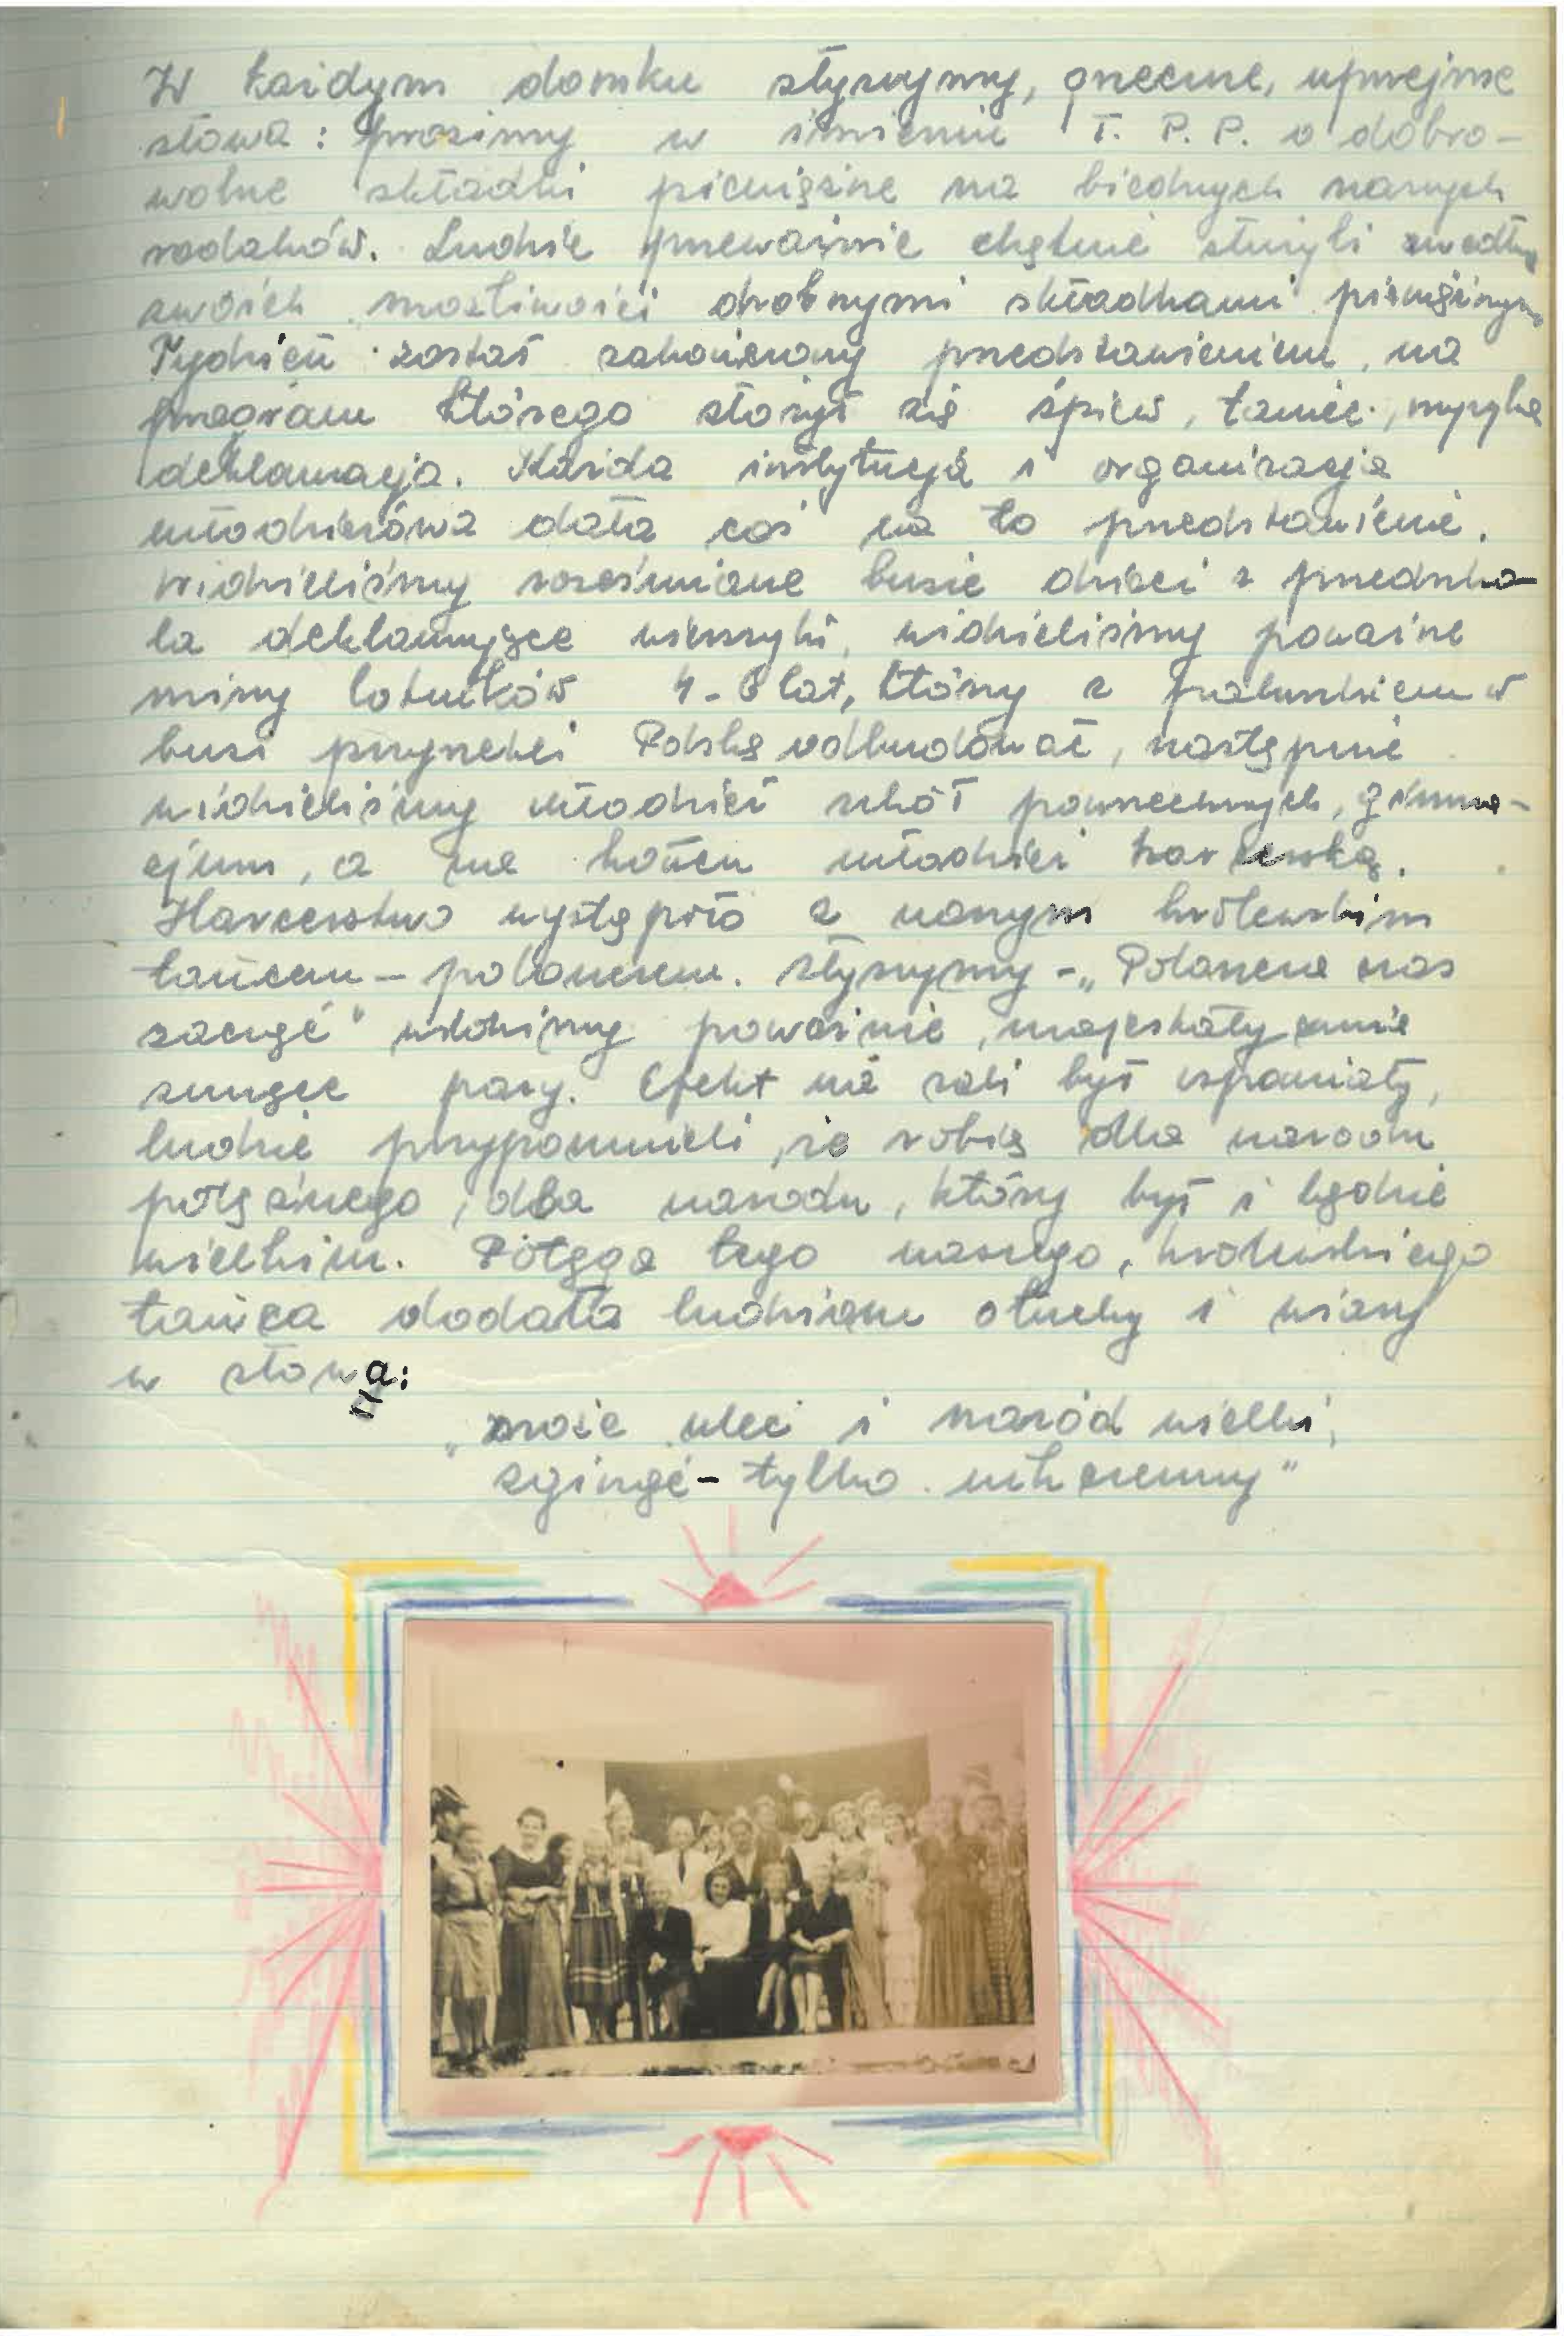 W każdym domku słyszymy, grzeczne, uprzejme
słowa: prosimy w imieniu T. P. P. o dobro-
wolne składki pieniężne na biednych naszych
rodaków. Ludzie przeważnie chętnie służyli według
swoich możliwości drobnymi składkami pieniężnymi
Tydzień został zakończony przedstawieniem, na
program którego złożył się śpiew, taniec, muzyka
deklamacja. Każda instytucja i organizacja
młodzieżowa dała coś na to przedstawienie.
Widzieliśmy roześmiane buzie dzieci z przedszko-
la deklamujące wierszyki, widzieliśmy poważne
miny 4-6 lat, którzy z w
buzi przyrzekli Polskę odbudować, następnie
widzieliśmy młodzież szkół powszechnych, gimna-
zjum, a na końcu młodzież harcerską.
Harcerstwo wystąpiło z naszym królewskim
tańcem - polonezem. Słyszymy - „Poloneza czas
zacząć" widzimy poważnie, majestatycznie
sunące pary. Efekt na sali był wspaniały,
ludzie przypomnieli, że robią dla narodu
potężnego, dla narodu, który był i będzie
wielkim. Potęga tego naszego, królewskiego
tańca dodała ludziom otuchy i wiary
w słowa:
„może ulec i naród wielki,
zginąć - tylko nikczemny"